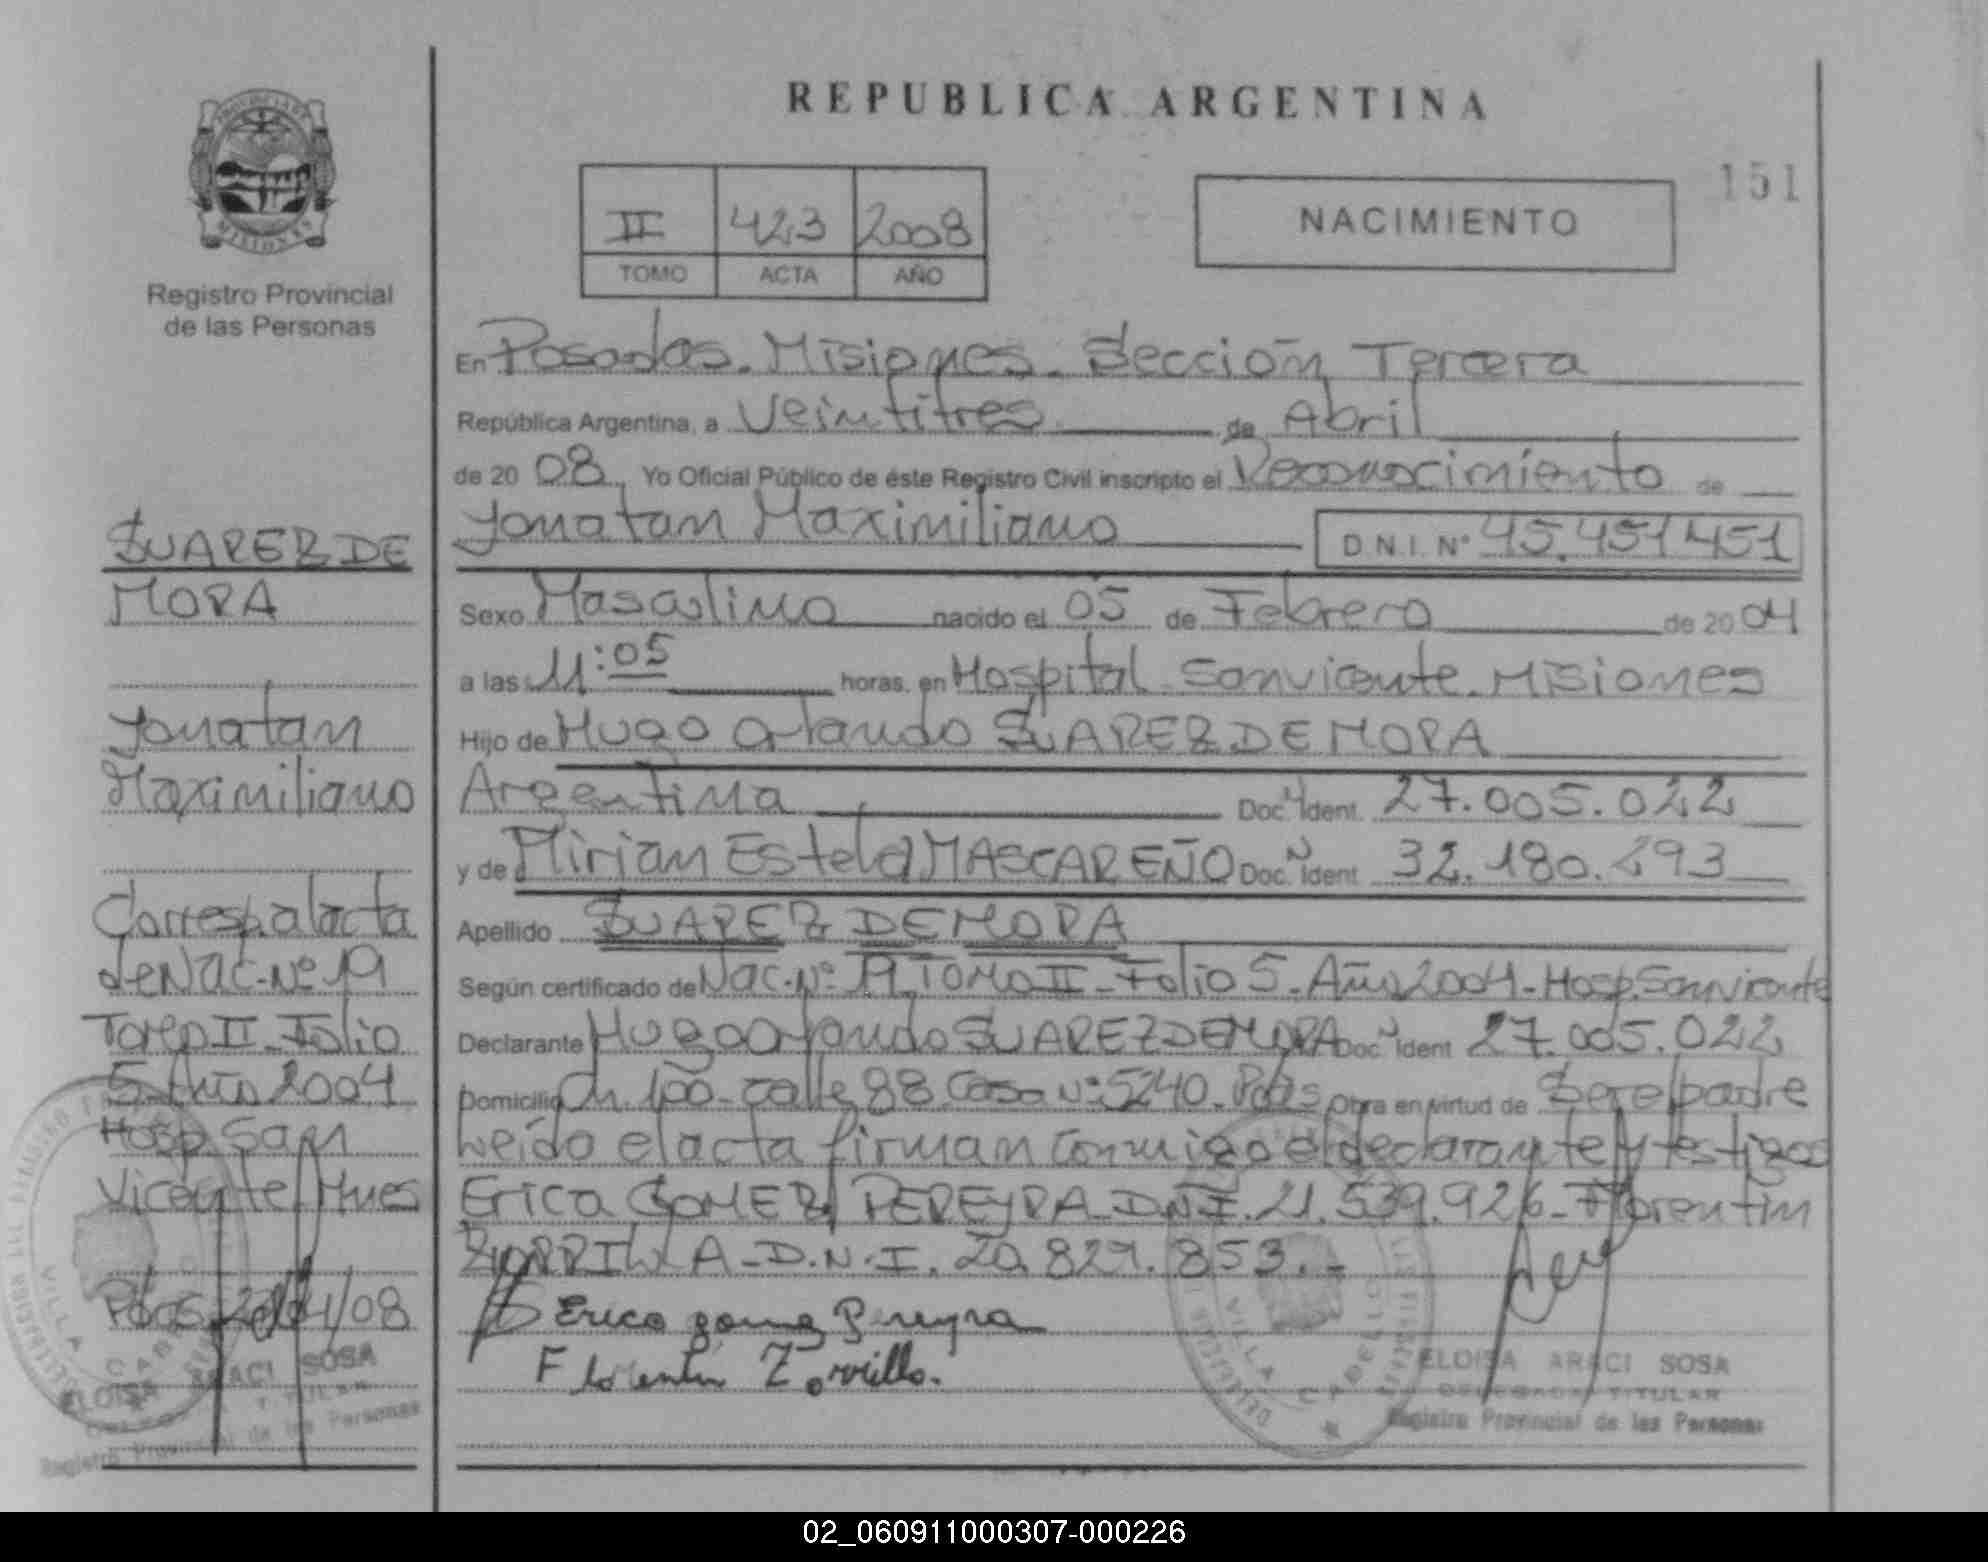 REPUBLICA ARGENTINA
151
PROVINCIA DE MISIONES
Registro Provincial
de las Personas
II 423 2008
TOMO ACTA AÑO
NACIMIENTO
En Posadas. Misiones. Sección Tercera
República Argentina, a Veintitres de Abril
de 2008 Yo Oficial Público de éste Registro Civil inscripto el Reconocimiento de
Jonatan Maximiliano D.N.I. Nº 45.451451
Sexo Masculino nacido el 05 de Febrero de 2004
a las 11:05 horas. en Hospital San vicente. Misiones
Hijo de Hugo Orlando SUAREZ DE MORA
Argentina Doc. N Ident. 27.005.022
y de Mirian Estela MASCAREÑO Doc. N Ident 32.180.293
Apellido SUAREZ DE MORA
Según certificado de Nac. Nº 19 TOMO II - Folio 5 - Año 2004 - Hosp. San vicente
Declarante Hugo Orlando SUAREZ DE MORA Doc. N Ident 27.005.022
Domicilio Ch. 100 - calle 88 Casa Nº 5240 - Pdas Obra en virtud de Ser el padre
Leído el acta firman conmigo el declarante y testigos
Erica GOMEZ PEREYRA D.N.I. 21.539.926 - Florentin
ZORRILLA - D.N.I. 20.829.853.-
Erica gomez Pereyra
Florentin Zorrilla.
ELOISA ARACI SOSA
DELEGADA TITULAR
Registro Provincial de las Personas
VILLA CABELLO
SUAREZ DE
MORA
Jonatan
Maximiliano
Corresp. al acta
de Nac. Nº 19
Tomo II - Folio
5 - Año 2004
Hosp. San
Vicente Mnes
Pdas /04/08
VILLA CABELLO
ELOISA ARACI SOSA
DELEGADA TITULAR
Registro Provincial de las Personas
02_060911000307-000226